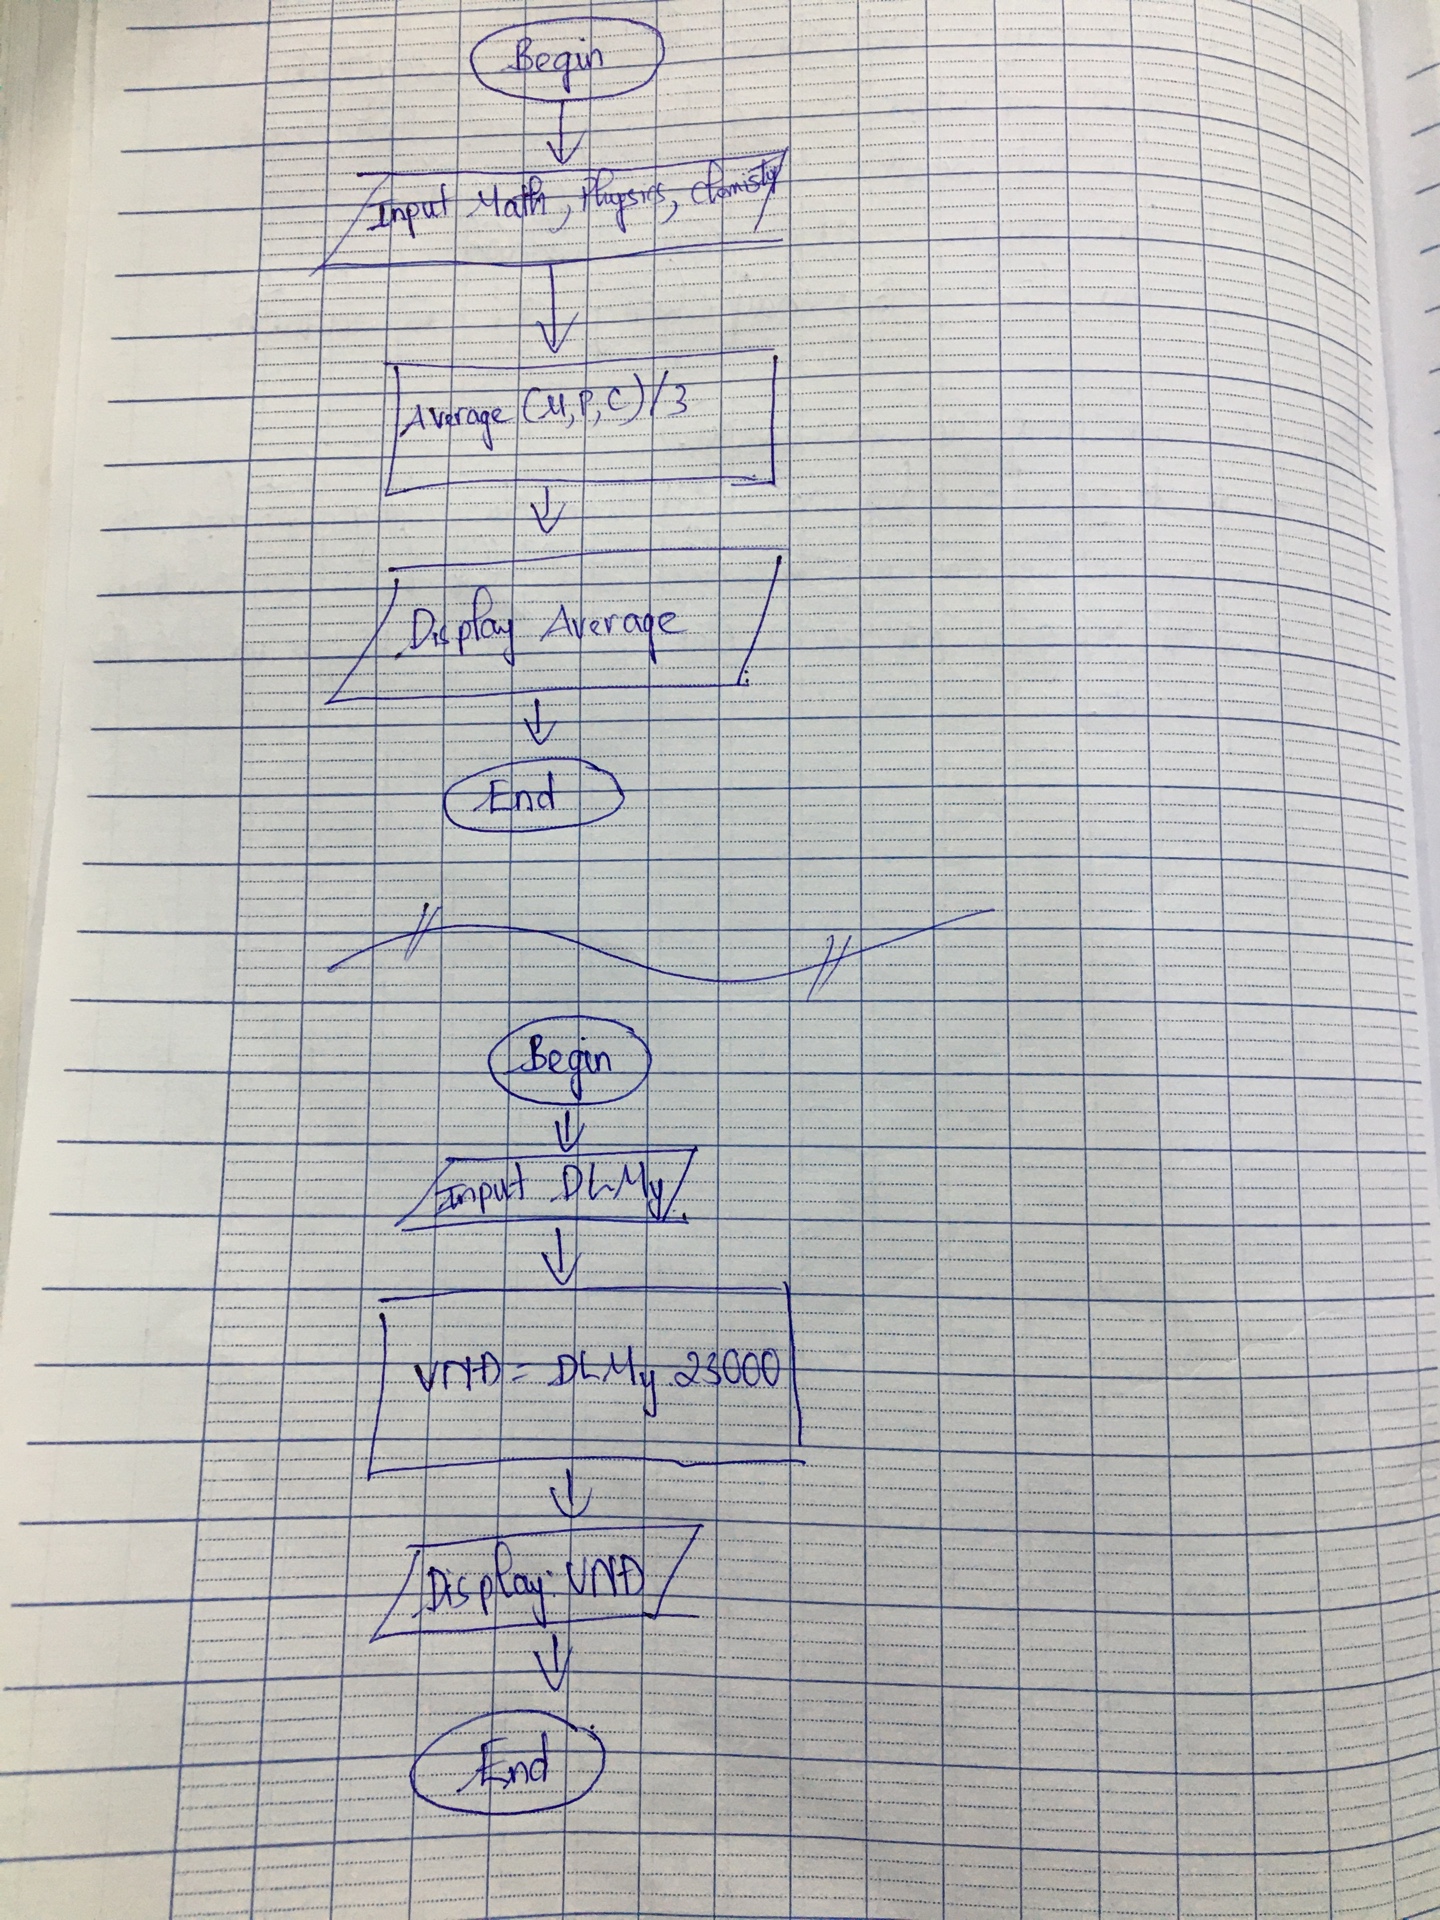 Begin
Input Math, Physics, Chemisty
Average (M, P, C)/3
Display Average
End
Begin
Input DLMy
VNĐ = DLMy.23000
Display: VNĐ
End